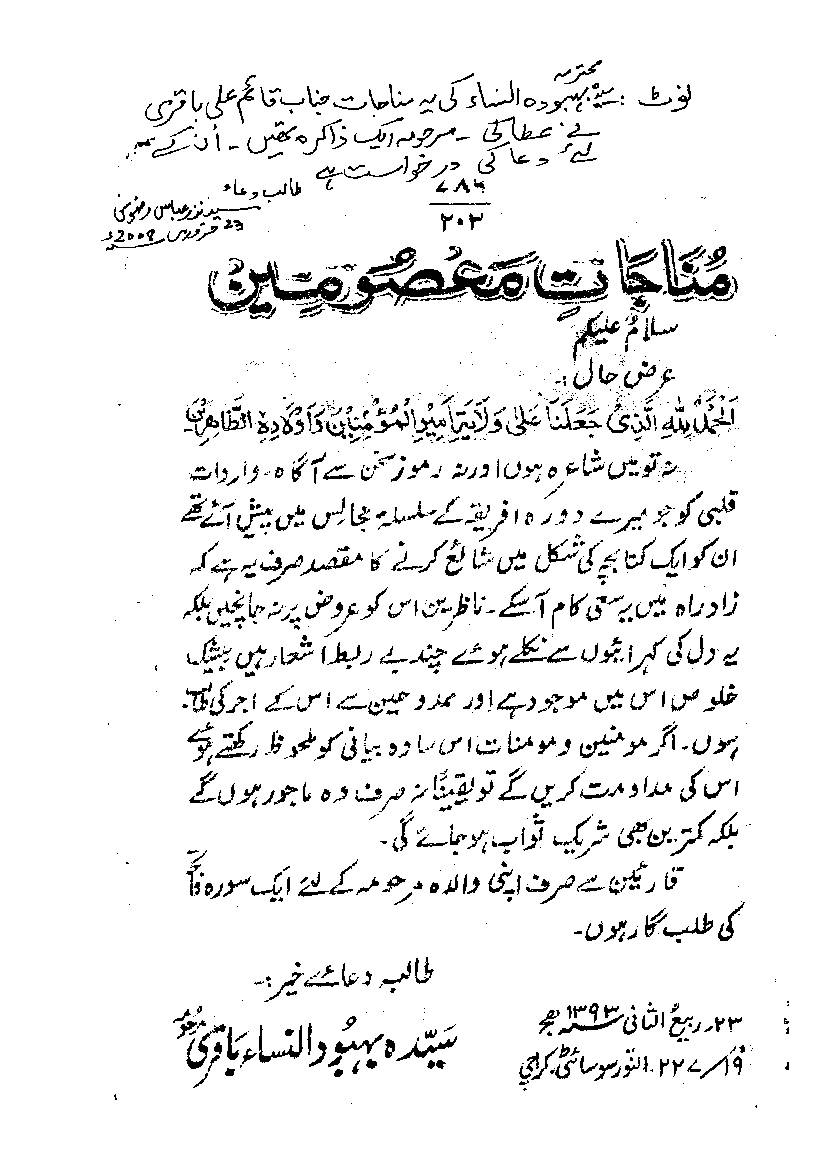 محترمہ
نوٹ: سیدہ بہبودہ النساء کی یہ مناجات جناب قائم علی باقری
نے عطا کی۔ مرحومہ ایک ذاکرہ تھیں۔ اُن کے
لئے دعا کی درخواست ہے
طالب دعاء
سید نذر عباس رضوی
23 فروری 2009ء
۷۸۶
۲۰۲
مُنَاجَاتِ مَعْصُومِین
سلامٌ علیکم
عرض حال :۔
اَلْحَمْدُ لِلّٰہِ الَّذِیْ جَعَلَنَا عَلٰی وَلَایَۃِ اَمِیْرِ الْمُؤْمِنِیْنَ وَاَوْلَادِہِ الطَّاھِرِیْنَ۔
نہ تو میں شاعرہ ہوں اور نہ رموز سخن سے آگاہ۔ واردات
قلبی کو جو میرے دورہ افریقہ کے سلسلہ مجالس میں پیش آئے تھے
ان کو ایک کتابچے کی شکل میں شائع کرنے کا مقصد صرف یہ ہے کہ
زاد راہ میں یہ سعی کام آسکے۔ ناظرین اس کو عروض پر نہ جانچیں بلکہ
یہ دل کی گہرائیوں سے نکلے ہوئے چند بے ربط اشعار ہیں بیشک
خلوص اس میں موجود ہے اور ممدوحین سے اس کے اجر کی طالب
ہوں۔ اگر مومنین و مومنات اس سادہ بیانی کو ملحوظ رکھتے ہوئے
اس کی مداومت کریں گے تو یقیناً نہ صرف وہ ماجور ہوں گے
بلکہ کمترین بھی شریک ثواب ہو جائے گی۔
قارئین سے صرف اپنی والدہ مرحومہ کے لئے ایک سورہ فاتحہ
کی طلب گار ہوں۔
طالبہ دعائے خیر :۔
سیّدہ بہبود النساء باقری مرحومہ
۲۳۔ ربیعُ الثانی ۱۳۹۳ھ
النور سوسائٹی۔ کراچی